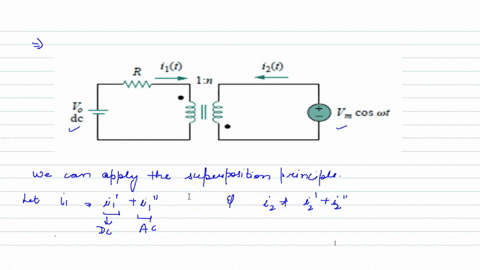 ⇒)
R i₁(t) 1:n i₂(t)
V₀
dc
+
−
Vₘ cos ωt
We can apply the superposition principle.
Let i₁ = i₁' + i₁" & i₂ = i₂' + i₂"
DC AC